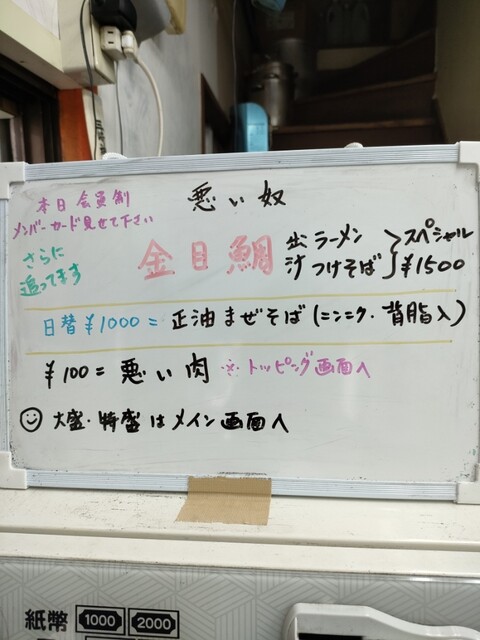 本日会員制
メンバーカード見せて下さい
悪い奴
さらに
追ってます
金目鯛
出ラーメン
汁つけそば
スペシャル
¥1500
日替¥1000=正油まぜそば(ニンニク・背脂入)
¥100=悪い肉 ※トッピング画面へ
大盛・特盛はメイン画面へ
紙幣 1000 2000